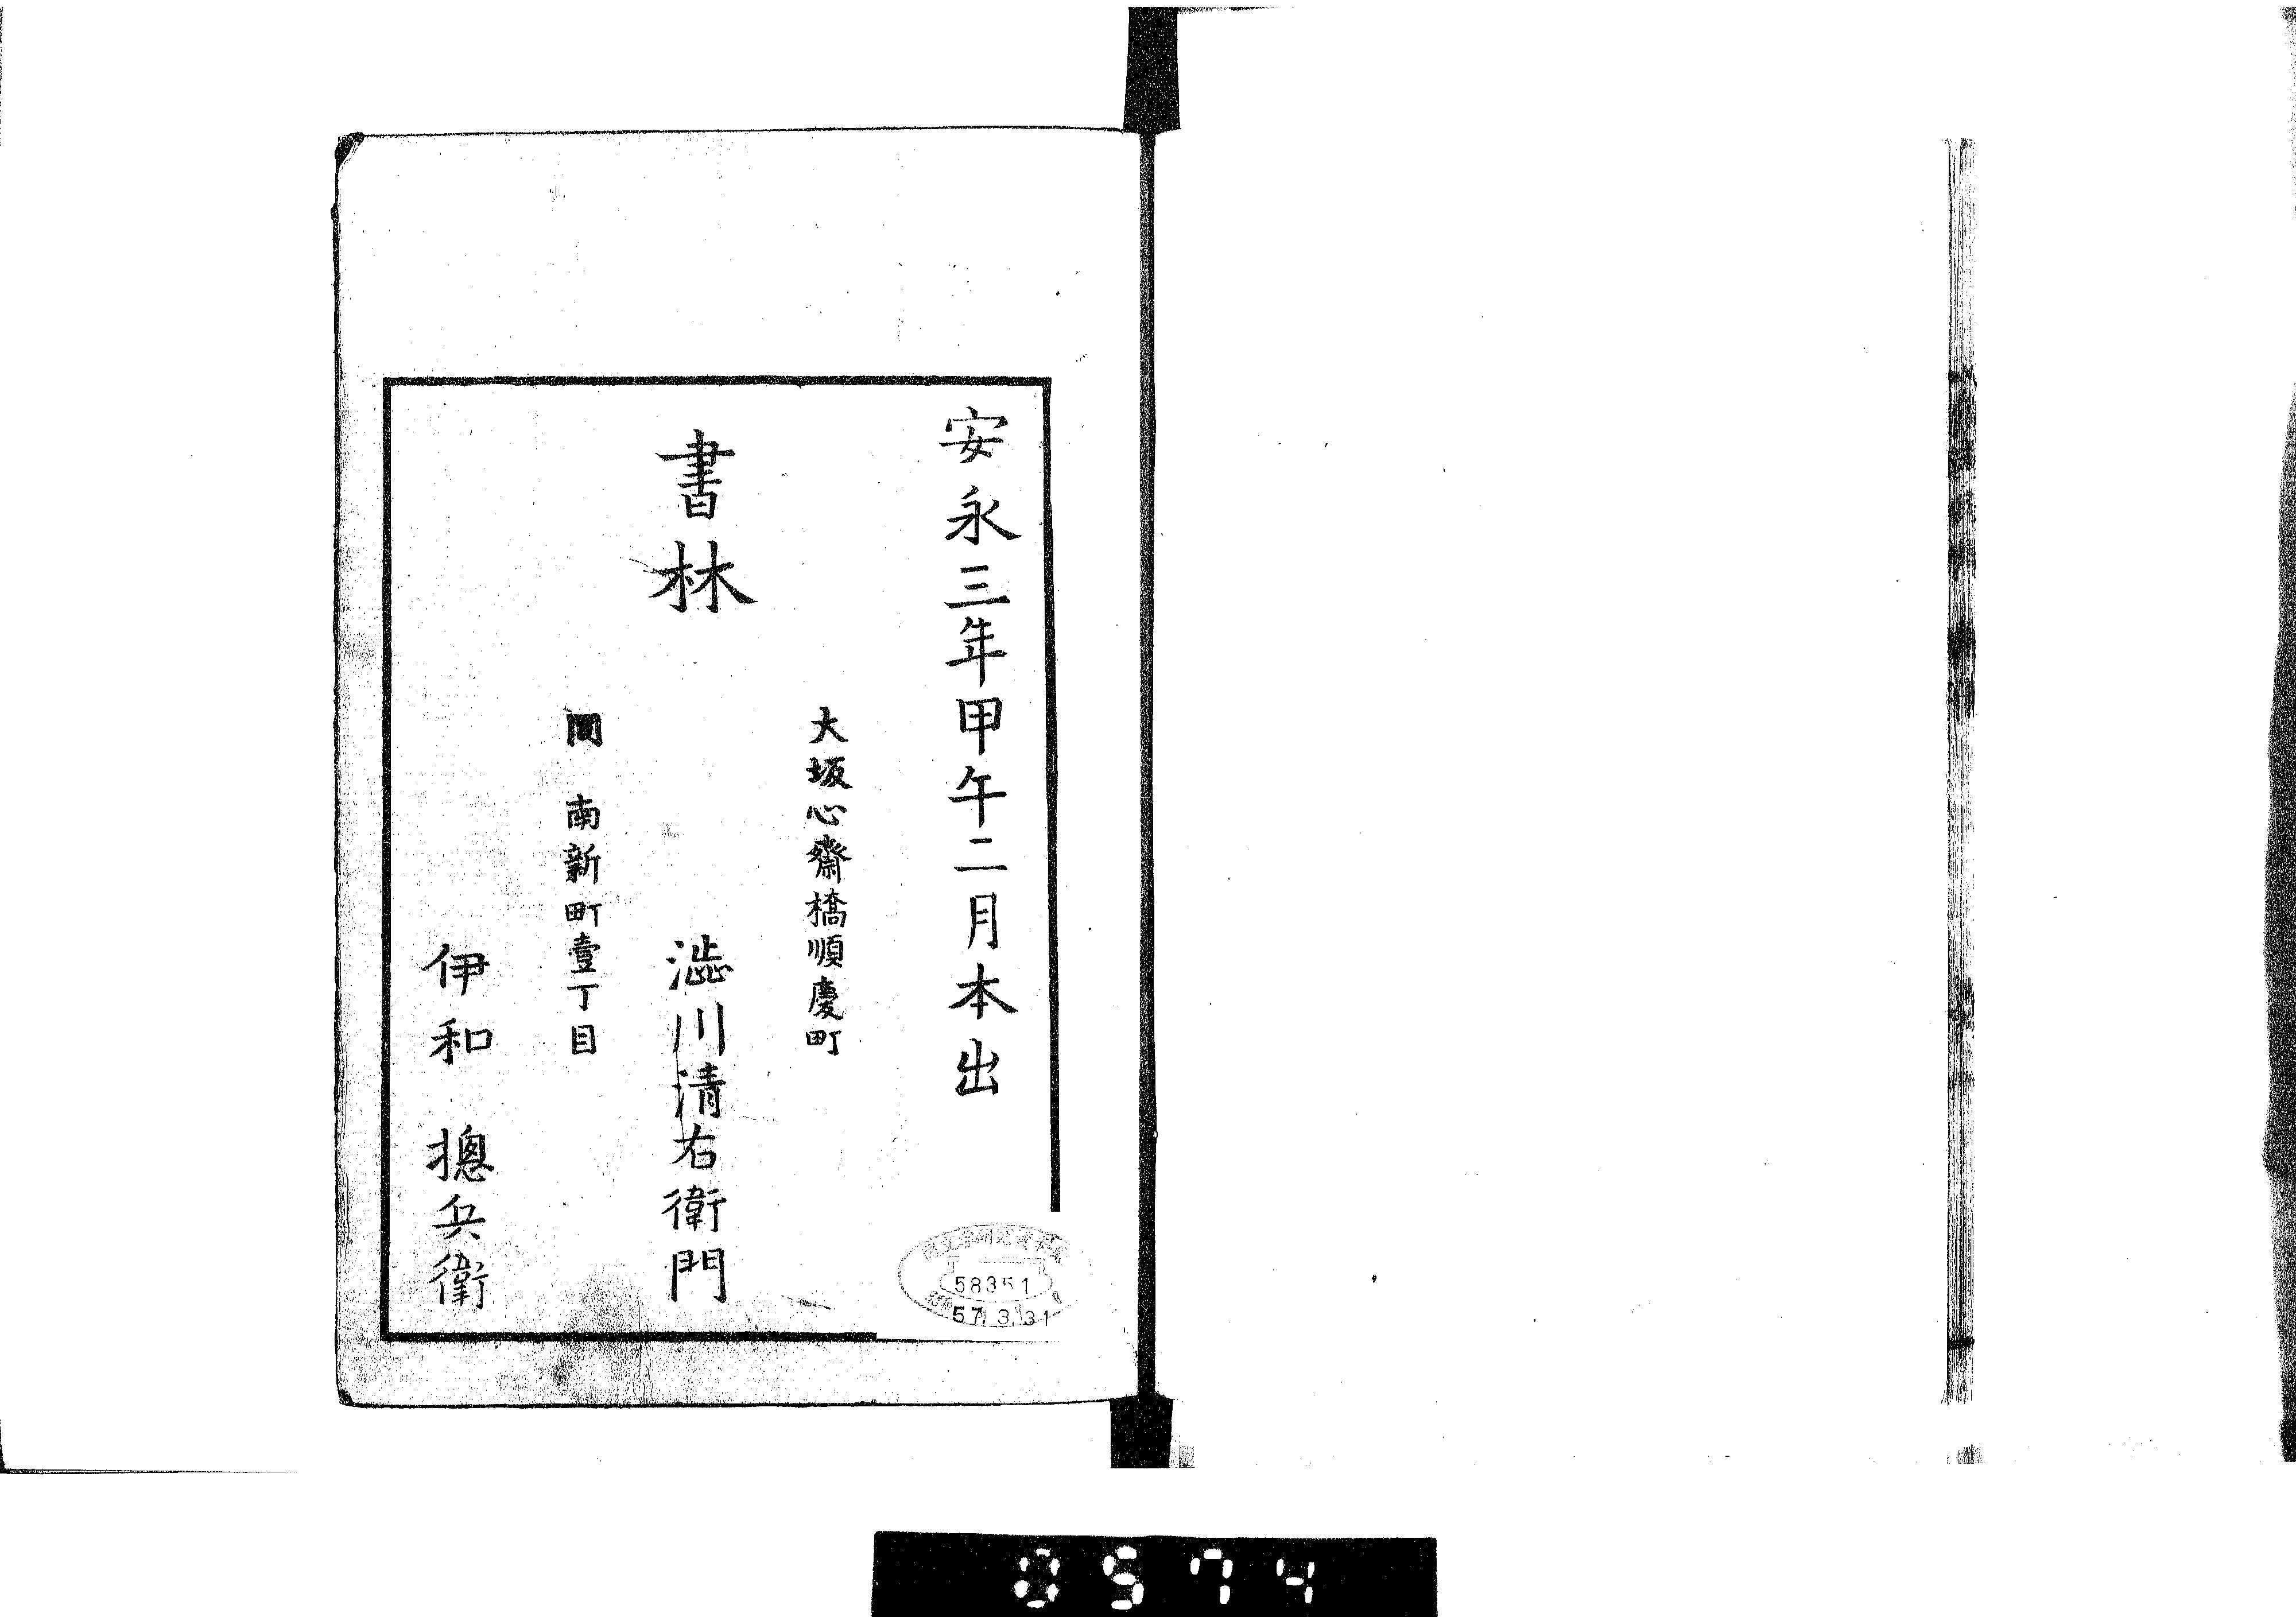 安永三年甲午二月本出
大坂心齋橋順慶町
書林
澁川清右衛門
南新町壹丁目
伊和 摠兵衛
58351
57.3.31
0574